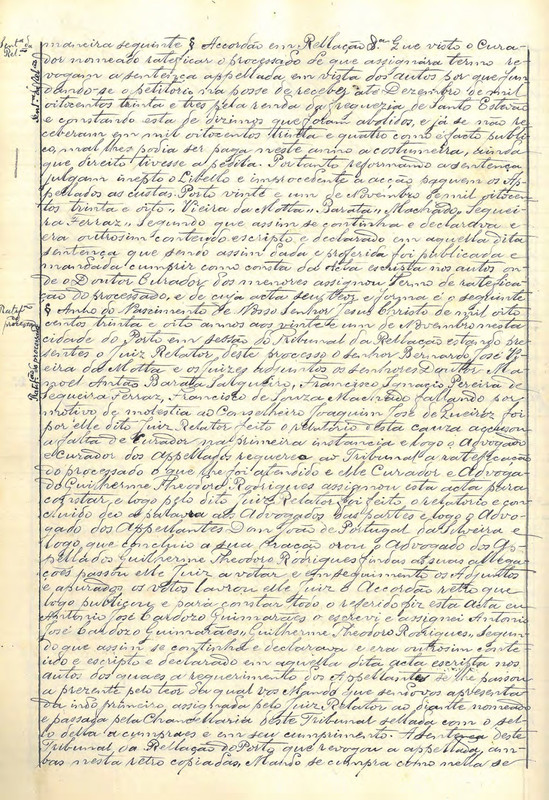 Sent.ª da Rel.
maneira seguinte § Accordão em Rellação &.ª Que visto o Cura-
dor nomeado rateficar o processado de que assignára termo re-
vogam a sentença appellada em vista dos autos por que fun-
dando-se o petitorio na posse de receber até Dezembro de mil
oitocentos trinta e tres pela renda da freguezia de Santo Estevão
e constando esta de dizimos que foram abolidos, e já se não re-
ceberam em mil oitocentos trinta e quatro como é facto publi-
co, mal lhes podia ser paga neste anno a costumeira, ainda
que direito tivesse a pedila. Portanto reformando a sentença
julgam inepto o Libello e improcedente a acção paguem os Ap-
pellados as custas. Porto vinte e um de Novembro de mil oitocen-
tos trinta e oito " Vieira da Motta " Barata " Machado " Sequei-
ra Ferraz " Segundo que assim se continha e declarava e
era outrosim conteudo escripto e declarado em aquella dita
sentença que sendo assim dada e proferida foi publicada e
mandada cumprir como consta da Acta escripta nos autos on-
de o Doutor Curador dos menores assignou termo de ratefica-
ção do processado, e de cuja acta seu theor e forma é o seguinte
§ Anno do Nascimento de Nosso Senhor Jesus Christo de mil oito
centos trinta e oito annos aos vinte e um de Novembro nesta
cidade do Porto em sessão do Tribunal da Rellação estando pre-
sentes o Juiz Relator deste processo o senhor Bernardo José Vi-
eira da Motta e os juizes adjuntos os senhores Doutor Ma-
noel Antão Barata Salgueiro, Francisco Ignacio Pereira de
Sequeira Ferraz, Francisco de Souza Machado faltando por
motivo de molestia ao Conselheiro Joaquim José de Queiroz foi
por elle dito Juiz Relator feito o relatorio desta cauza accusou
a falta de Curador na primeira instancia e logo o Advogado
e curador dos Appellados requereo ao Tribunal a rateficação
do processado o que lhe foi atendido e elle Curador e Advoga-
do Guilherme Theodoro Rodrigues assignou esta acta para
constar, e logo pelo dito Juiz Relator foi feito o relatorio e con-
cluido deo a palavra aos Advogados das partes e logo o Advo-
gado dos Appellantes Dom João de Portugal da Silveira e
logo que concluio a sua oração orou o Advogado dos Ap-
pellados Guilherme Theodoro Rodrigues findas as suas allega-
ções passou elle Juiz a votar e em seguimento os Adjuntos
e apurados os votos lavrou elle Juiz o Accordão retro que
logo publicou e para constar todo o referido fiz esta Acta eu
Antonio José Cardozo Guimarães o escrevi e assignei Antonio
José Cardozo Guimarães, Guilherme Theodoro Rodrigues " Segun-
do que assim se continha e declarava e era outrosim conte-
udo e escripto e declarado em aquesta dita acta escripta nos
autos dos quaes a requerimento dos Appellantes se lhe passou
a prezente pelo teor da qual vos Mando que sendo-vos apresenta-
da indo primeiro, assignada pelo Juiz Relator ao diante nomeado
e passada pela Chancellaria deste Tribunal sellada com o sel-
lo della a cumpraes e em seu cumprimento A sentença deste
Tribunal da Rellação do Porto que revogou a appellada, am-
bas nesta retro copiadas, Mando se cumpra como nella se